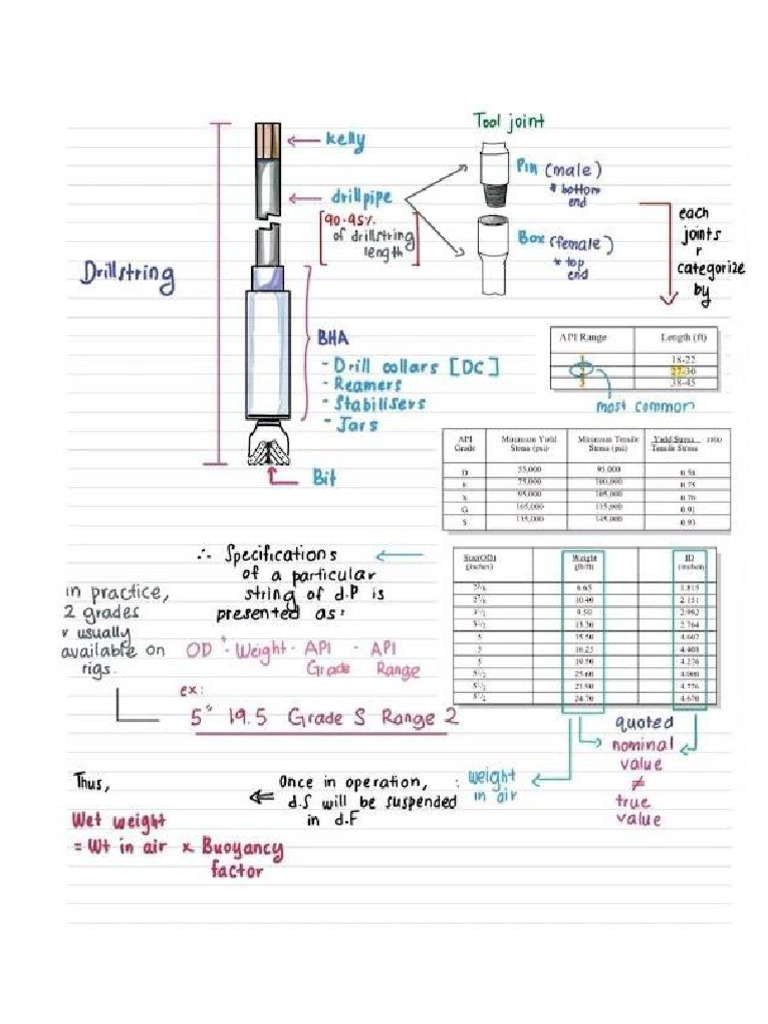 Tool joint
kelly
Pin (male)
* bottom
end
drillpipe
[90-95%
of drillstring
length]
Box (female)
* top
end
each
joints
r
categorize
by
Drillstring
BHA
- Drill collars [DC]
- Reamers
- Stabilisers
- Jars
Bit
API Range Length (ft)
1 18-22
2 27-30
3 38-45
most common
API Grade Minimum Yield Stress (psi) Minimum Tensile Stress (psi) Yield Stress Tensile Stress ratio
D 55,000 95,000 0.58
E 75,000 100,000 0.75
X 95,000 105,000 0.70
G 105,000 115,000 0.91
S 135,000 145,000 0.93
∴ Specifications
of a particular
string of d.P is
presented as:
in practice,
2 grades
r usually
available on
rigs.
OD" - Weight - API Grade - API Range
ex:
5" 19.5 Grade S Range 2
Size(OD) (inches) Weight (lb/ft) ID (inches)
6.65 1.815
10.40 2.151
9.50 2.992
13.30 2.764
5 15.50
5 16.25 4.408
5 19.50 4.276
5 1/2
5 1/2 21.90
5 1/2 24.70 4.670
quoted
nominal
value
≠
true
value
: weight
in air
Once in operation,
d.S will be suspended
in d.F
Thus,
Wet weight
= Wt in air x Buoyancy
factor